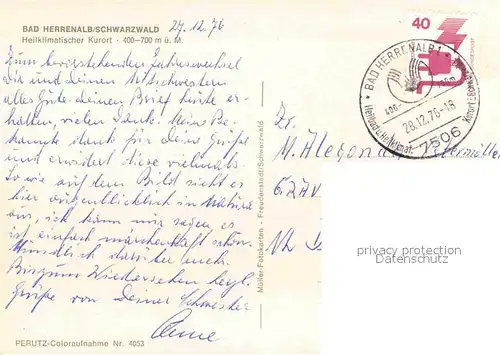 BAD HERRENALB/SCHWARZWALD 27.12.76
Heilklimatischer Kurort · 400–700 m ü. M.
Zum bevorstehenden Jahreswechsel
Dir und Deinen Mitschwestern
alles Gute. Deinen Brief heute er-
halten, vielen Dank. Meine Be-
kannte dankt für Deine Grüße
und erwidert diese vielmals.
So wie auf dem Bild sieht es
hier augenblicklich in Natura
aus, ich kann nur sagen, es
ist einfach märchenhaft schön.
Mündlich darüber mehr.
Bis zum Wiedersehen herzl.
Grüße von Deiner Schwester
PERUTZ-Coloraufnahme Nr. 4053
Müller-Fotokarten - Freudenstadt/Schwarzwald
40
BAD HERRENALB 1
400-
28.12.76-18
Heilbad u. Heilklimat. Kurort
7506
Sr.
M.
privacy protection
Datenschutz